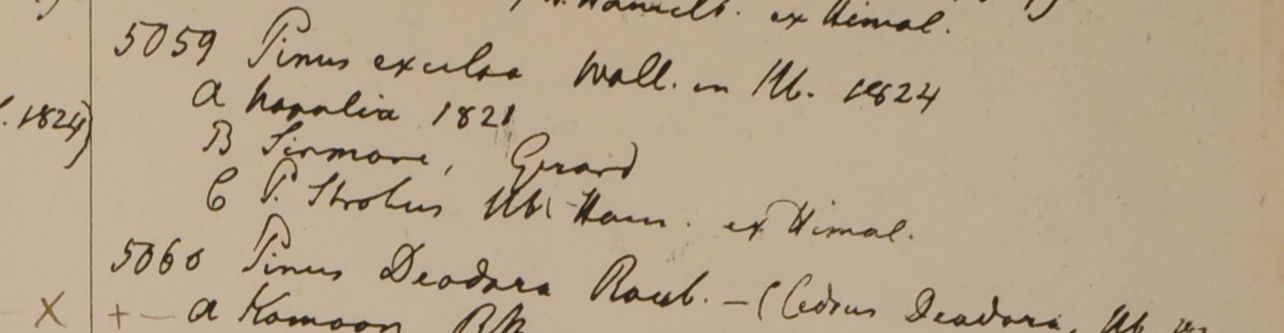 Hamilt. ex Himal.
5059 Pinus excelsa Wall. in Hb. 1824
a Napalia 1821
. 1824)
B Sirmore, Gerard
C P. Strobus Hb. Ham. ex Himal.
5060 Pinus Deodara Roxb. - (Cedrus Deodara, Hb.
X + - a Kamaon RB